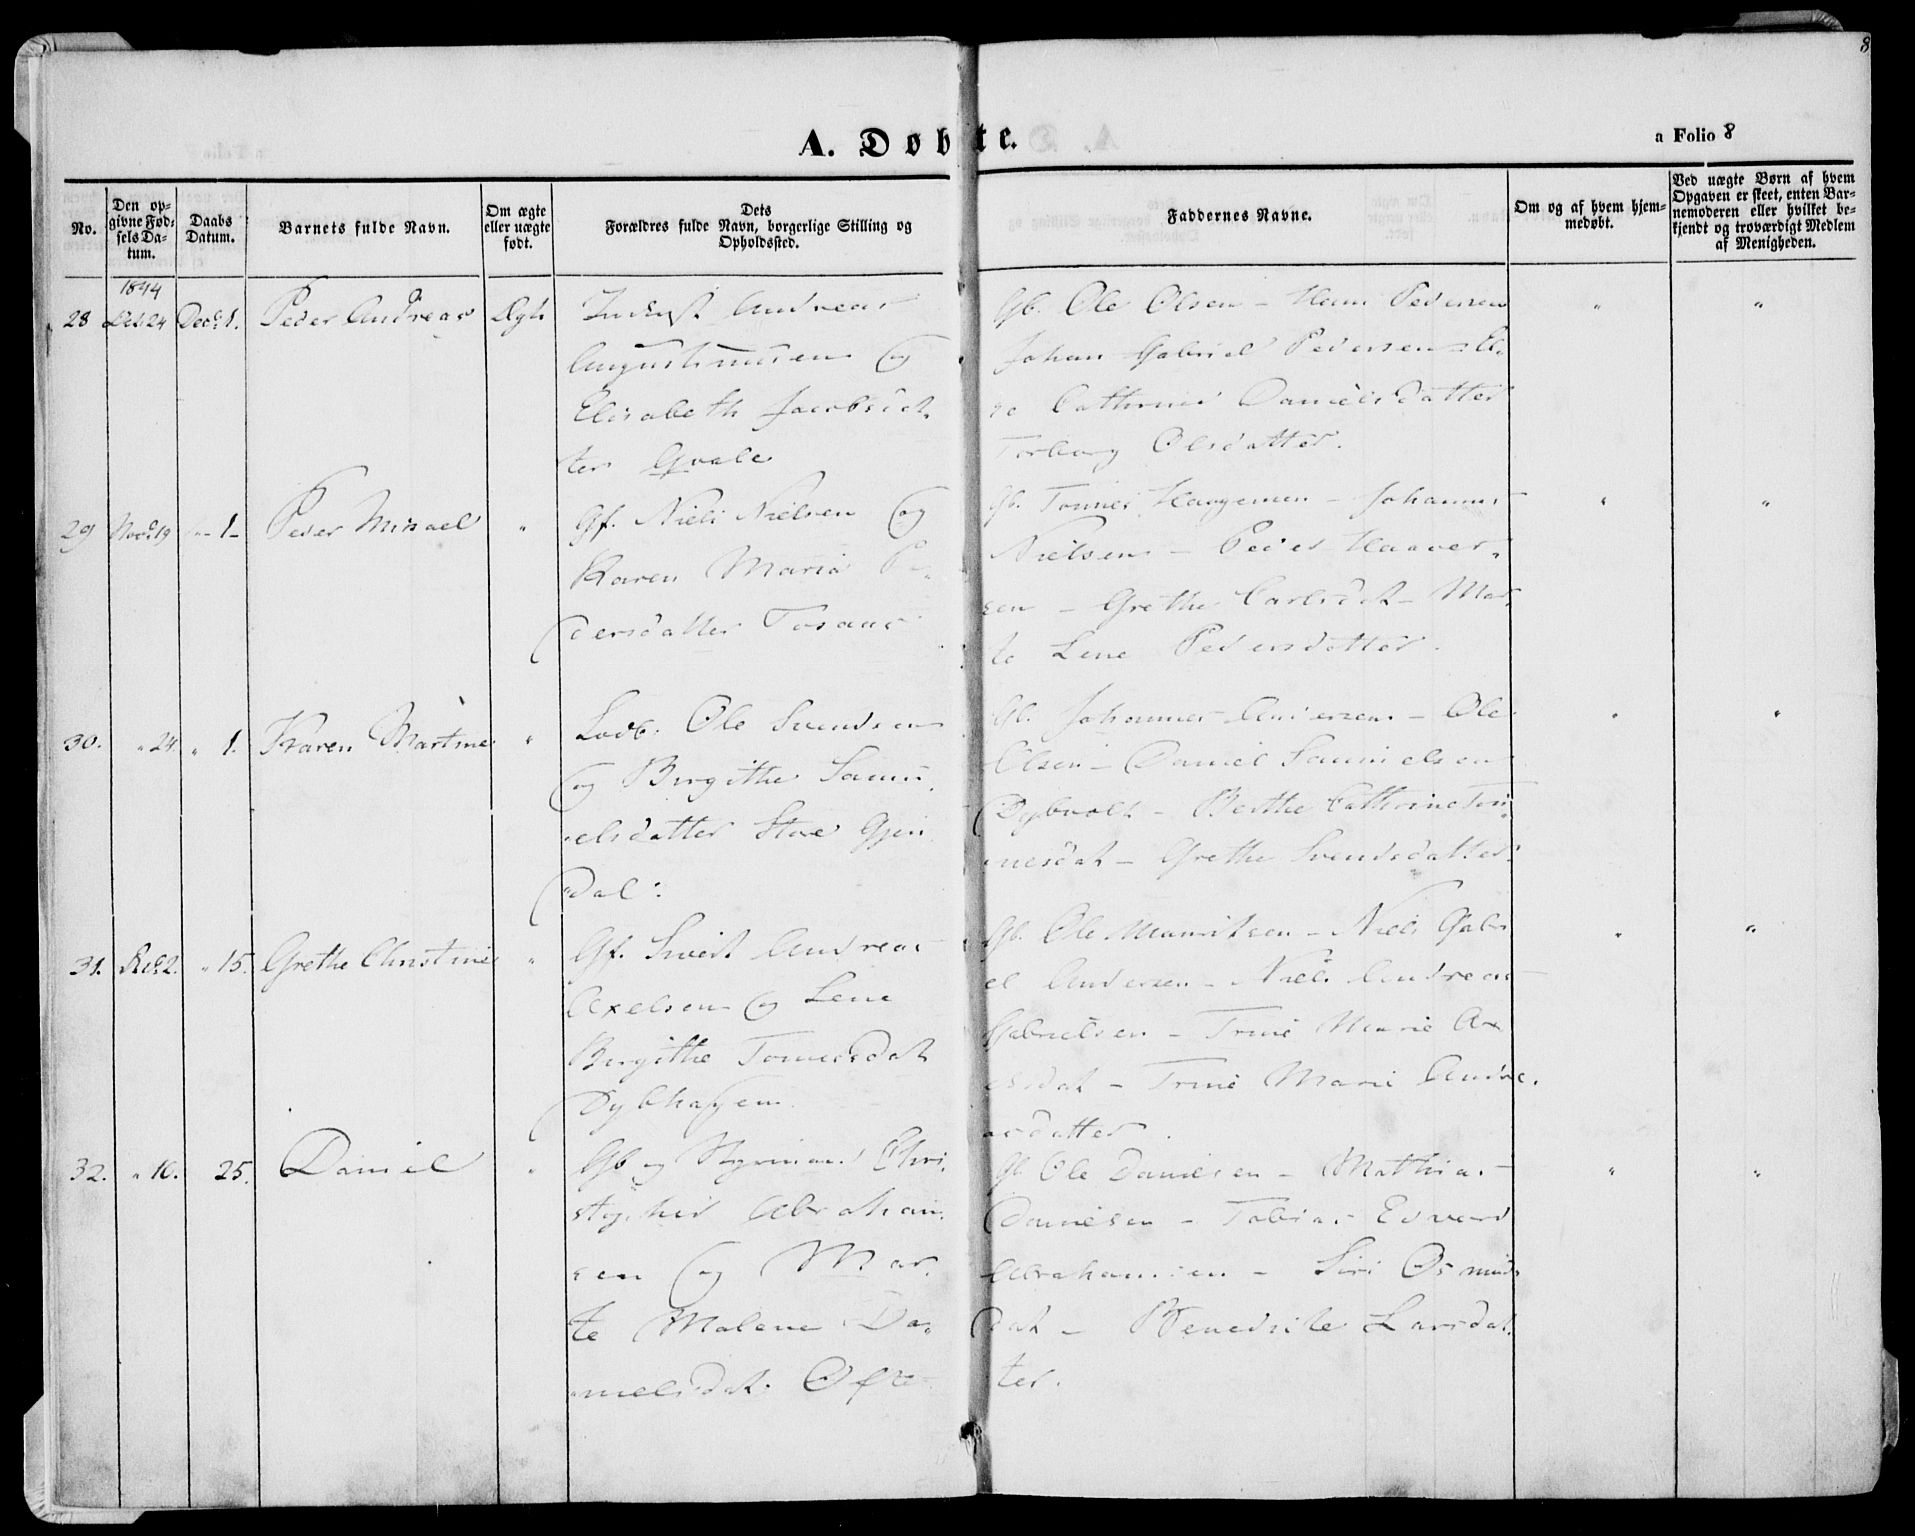 8
A. Døbte.
a Folio 8
No.
Den op-
givne Fød-
sels Da-
tum.
Daabs
Datum.
Barnets fulde Navn.
Om ægte
eller uægte
født.
Dets
Forældres fulde Navn, borgerlige Stilling og
Opholdssted.
Faddernes Navne.
Om og af hvem hjem-
medøbt.
Ved uægte Børn af hvem
Opgaven er skeet, enten Bar-
nemoderen eller hvilket be-
kjendt og troværdigt Medlem
af Menigheden.
1844
28 24 Decbr 1. Peder Andreas Ægte
Inderst Andreas
Augustinusen og
Elisabeth Jacobsdat
ter Qvale
Gb. Ole Olsen - Hans Pedersen
Johan Gabriel Pedersen - El-
se Cathrine Danielsdatter
Torborg Olsdatter.
29 Novbr 19 " 1 Peder Misael "
Gf. Niels Nielsen og
Karen Maria Pe-
dersdatter Tosaas
Gb. Tønnes Haagensen - Johannes
Nielsen - Peder Haaver-
sen - Grethe Carlsdat - Mar-
te Lene Pedersdatter.
30. " 24 " 1. Karen Martine "
Ole Svendsen
og Birgithe Samu-
elsdatter Stue Gjen
dal.
Gb. Johannes Andersen - Ole
Olsen - Daniel Samuelsen
Dybvolt - Berthe Cathrine Tøn-
nesdat - Grethe Svendsdatter
31. Decbr 2. " 15. Grethe Christine "
Gf. Sivert Andreas
Axelsen og Lene
Birgithe Tønnesdat
Gb. Ole Mauritsen - Niels Gabri
el Andersen - Niels Andreas
Gabrielsen - Trine Marie Ax
elsdat - Trine Marie Andre-
asdatter.
32. " 16. 25. Daniel "
Gb og Styrmand Chri-
stopher Abraham-
sen og Mar-
te Malene Da-
nielsdat. Ofte
Gb. Ole Danielsen - Mathias
Danielsen - Tobias Edvard
Abrahamsen - Siri Osmunds
dat - Benedicte Larsdat-
ter.